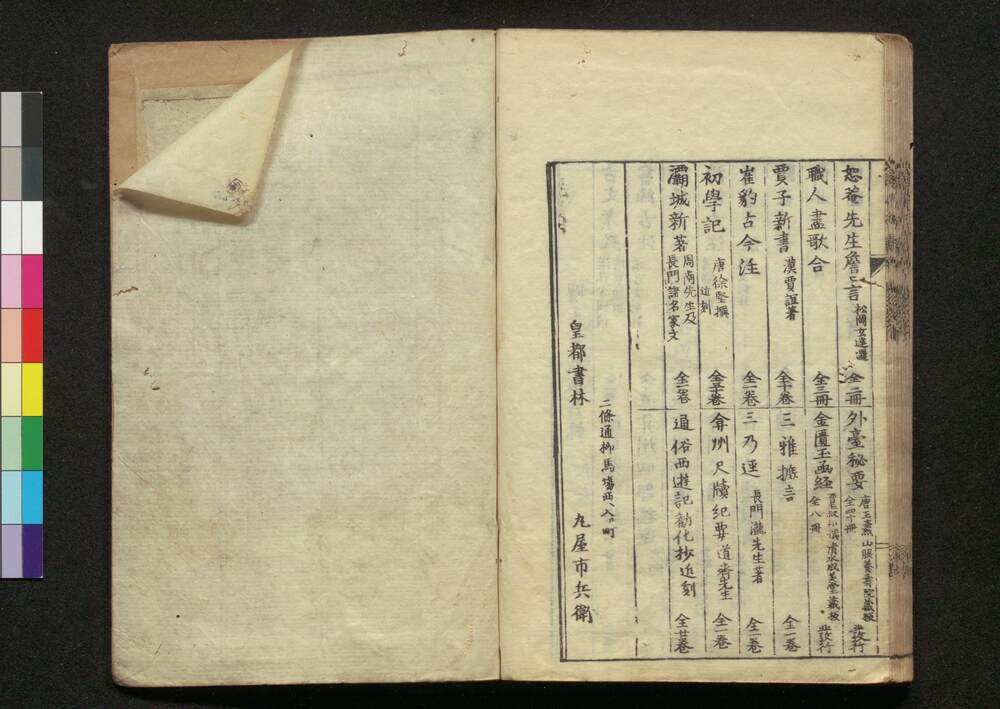 恕菴先生詹言 松岡玄達撰 全二冊
外臺秘要 唐王燾 山脇養壽院藏板 全四十冊 發行
職人盡歌合 全三冊
金匱玉函経 清水敬長堂藏板 全八冊 發行
賈子新書 漢賈誼著 全十卷
三雅摭言 全一卷
崔豹古今注 全一卷
三乃逕 長門瀧先生著 全一卷
初學記 唐徐堅撰 近刻 全三十卷
弇州尺牘紀要 道齋先生 全一卷
灞城新著 周南先生及長門諸名家文 全二卷
通俗西遊記 勧化抄 近刻 全廿卷
二條通柳馬場西ヘ入ル町
皇都書林 九屋市兵衛